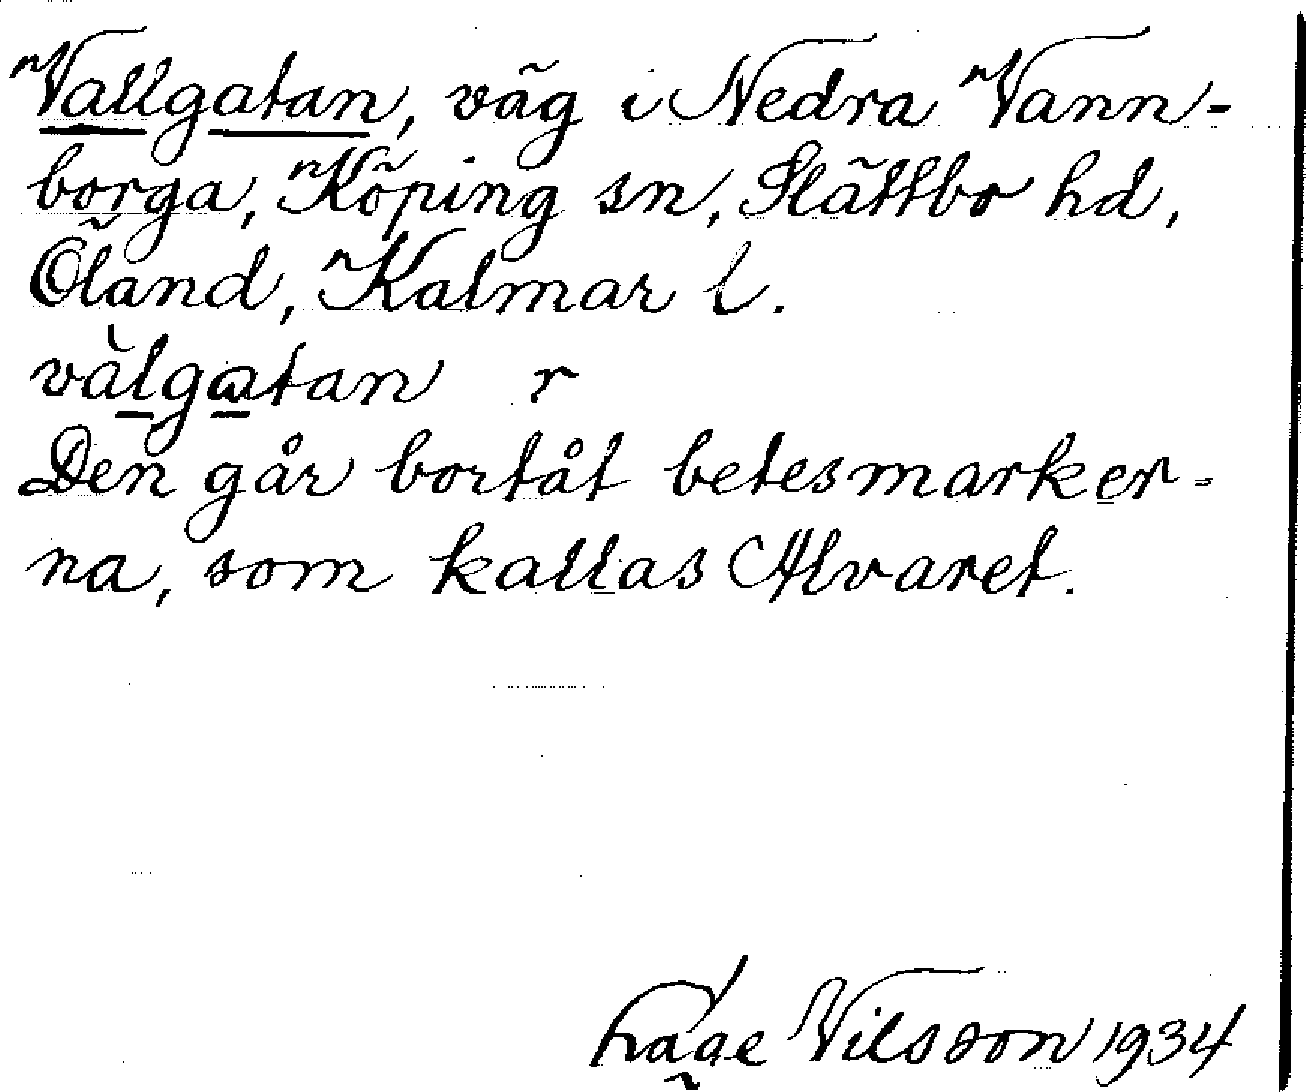 Vallgatan, väg i Nedra Vann-
borga, Köping sn, Slättbo hd,
Öland, Kalmar l.
vàlgatan r
Den går bortåt betesmarker-
na, som kallas Alvaret.
Håge Nilsson 1934